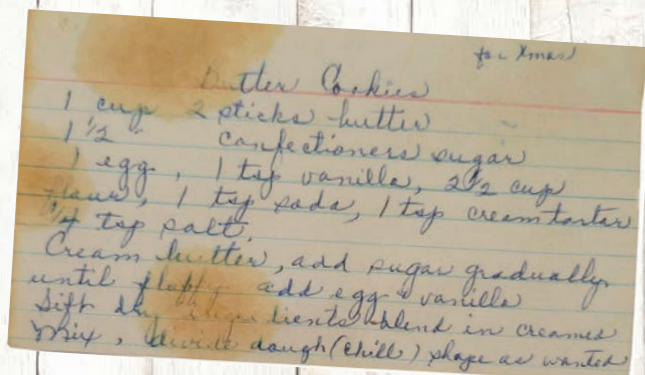 for Xmas
Butter Cookies
1 cup 2 sticks butter
1 1/2 " confectioners sugar
1 egg, 1 tsp vanilla, 2 1/2 cup
flour, 1 tsp soda, 1 tsp cream tartar
1/4 tsp salt.
Cream butter, add sugar gradually
until fluffy add egg & vanilla
Sift dry ingredients - blend in creamed
Mix, divide dough (chill) shape as wanted